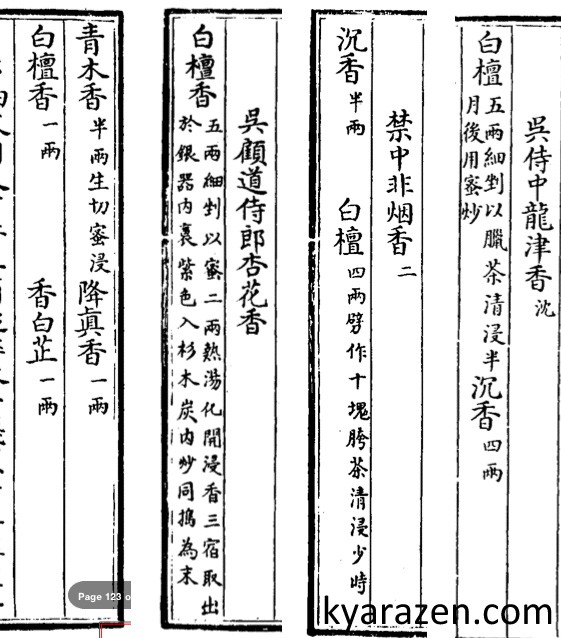 吳侍中龍津香 沈
白檀 五兩細剉以臘茶清浸半月後用蜜炒 沉香 四兩
禁中非烟香 二
沉香 半兩 白檀 四兩劈作十塊胯茶清浸少時
吳顧道侍郎杏花香
白檀香 五兩細剉以蜜二兩熱湯化開浸香三宿取出於銀器內裛紫色入杉木炭內炒同擣為末
青木香 半兩生切蜜浸 降眞香 一兩
白檀香 一兩 香白芷 一兩
Page 123 o
kyarazen.com